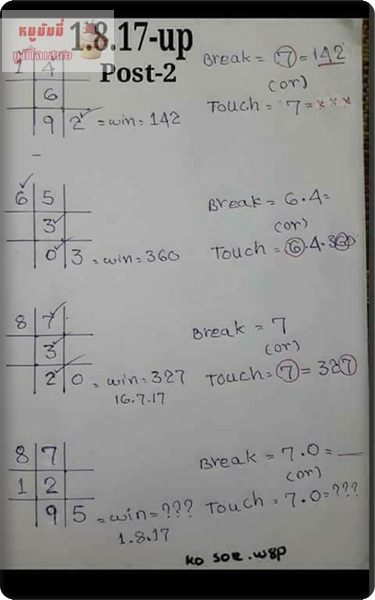 หมูบัมมี่
1.8.17-up
Post-2
1 4
6
9 2 = win = 142
Break = 7 = 142
(or)
Touch = 7 = xxx
6 5
3
0 3 = win = 360
Break = 6.4 =
(or)
Touch = 6.4.360
8 7
3
2 0 = win = 327
16.7.17
Break = 7
(or)
Touch = 7 = 327
8 7
1 2
9 5 = win = ???
1.8.17
Break = 7.0 = __
(or)
Touch = 7.0 = ???
ko soe.wgp